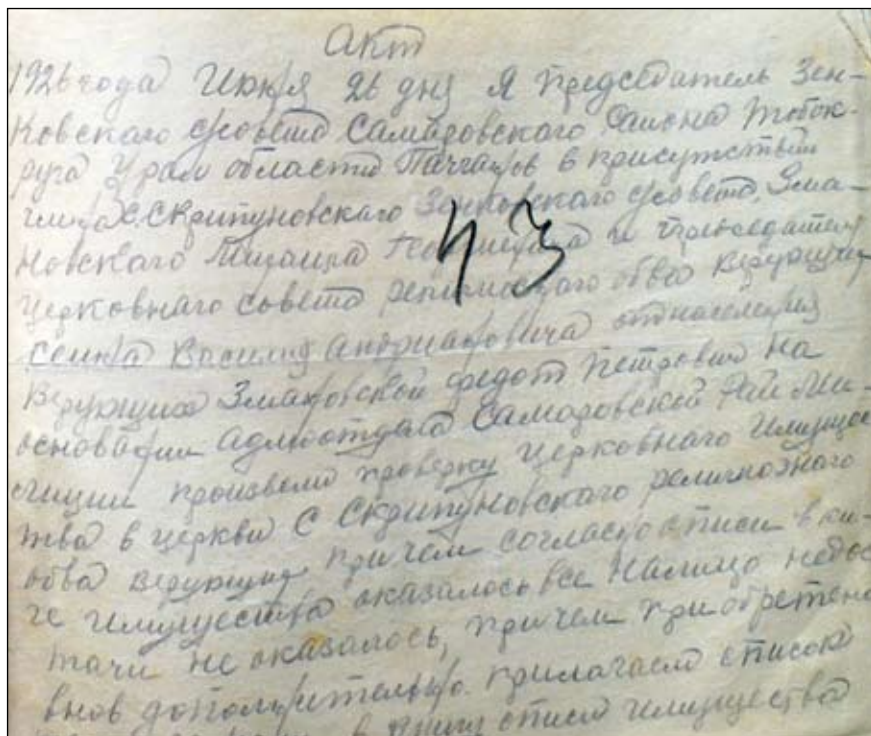 Акт
1926 года Июня 26 дня Я председатель Зен-
ковского с/совета Самаровского Района Тобок-
руга Урал области в присутствии
С. Скрипуновского Зенковского с/совета Зма-
новского Михаила и председателя
церковнаго совета религиознаго обва верующих
Василия Андриановича от населения
верующих Змановской Федот Петрович на
основании Адмотдела Самаровской Рай Ми-
лиции произвели проверку церковнаго Имущес
тва в церкви С Скрипуновского религиозного
обва верующих причем согласно описи в кни-
ге имущества оказалось все налицо недос
тачи не оказалось, причем приобретено
внов дополнительно прилагаем список
в книгу описи имущества
43